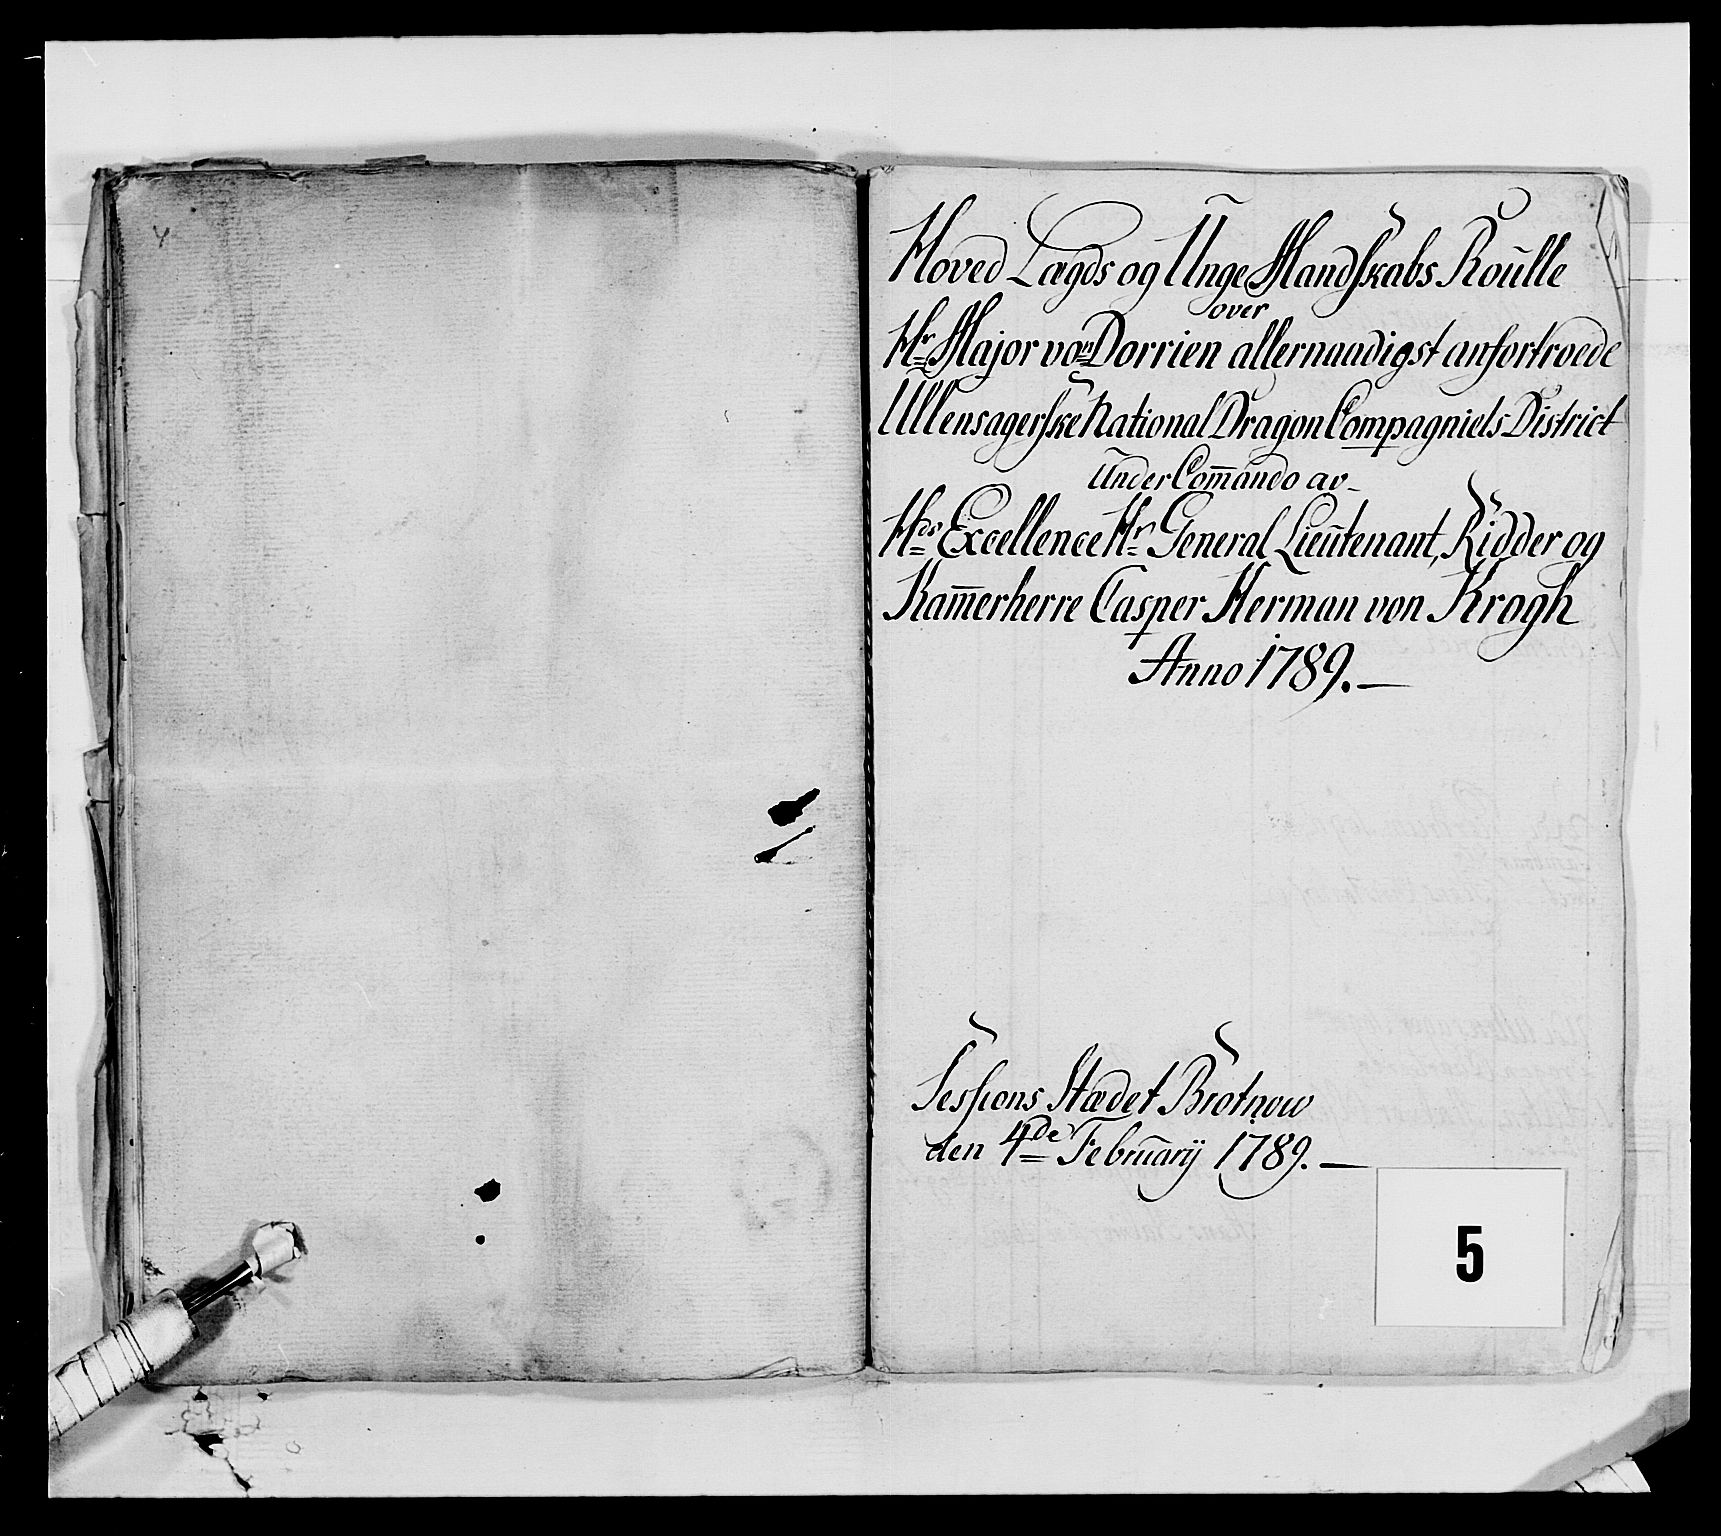 Hoved Lægds og Unge Mandskabs Roulle
over
Hr Major von Dorrien allernaadigst anfortroede
Ullensagerske National Dragon Compagniets District
under Com̄ando av
Hds Excellence Hr General Lieutenant, Ridder og
Kam̄erherre Casper Herman von Krogh
Anno 1789.
Sessions Stædet Brotnow
den 4de Februarij 1789.
5